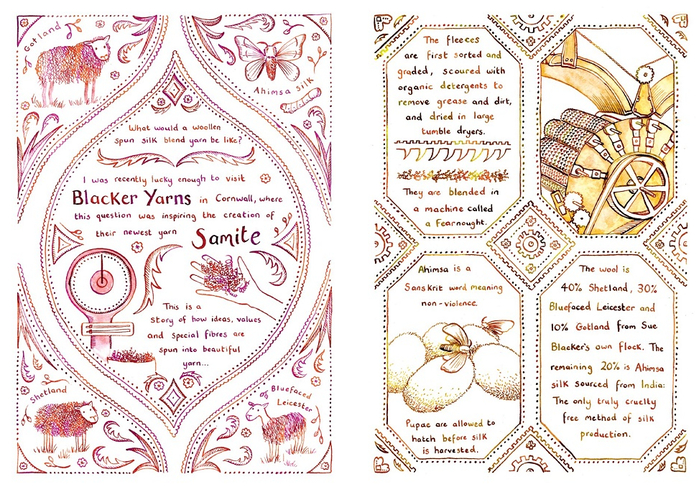 Gotland
Ahimsa Silk
What would a woollen
spun silk blend yarn be like?
I was recently lucky enough to visit
Blacker Yarns in Cornwall, where
this question was inspiring the creation of
their newest yarn Samite
This is a
story of how ideas, values
and special fibres are
spun into beautiful
yarn...
Shetland
Bluefaced
Leicester
The fleeces
are first sorted and
graded, scoured with
organic detergents to
remove grease and dirt,
and dried in large
tumble dryers.
They are blended in
a machine called
a Fearnought.
Ahimsa is a
Sanskrit word meaning
non-violence.
Pupae are allowed to
hatch before silk
is harvested.
The wool is
40% Shetland, 30%
Bluefaced Leicester and
10% Gotland from Sue
Blacker's own flock. The
remaining 20% is Ahimsa
silk sourced from India:
The only truly cruelty
free method of silk
production.